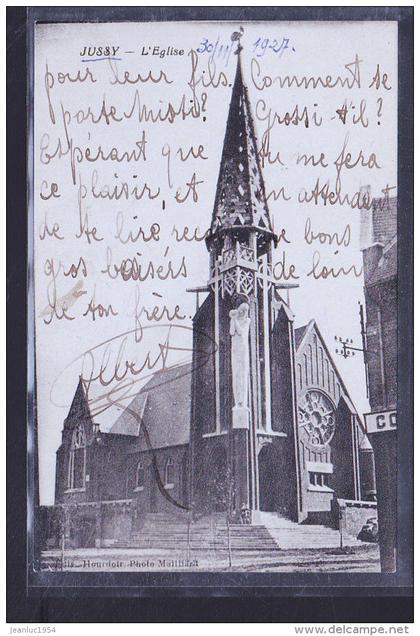 JUSSY — L'Eglise 30/11 1927.
pour leur fils. Comment se
porte Misti? Grossi-t'il?
Espérant que tu me fera
ce plaisir, et en attendant
de te lire reçoe bons
gros baisérs de loin
de ton frère.
Albert
Hourdoir Photo Mailliard
jeanluc1954 @ www.delcampe.net